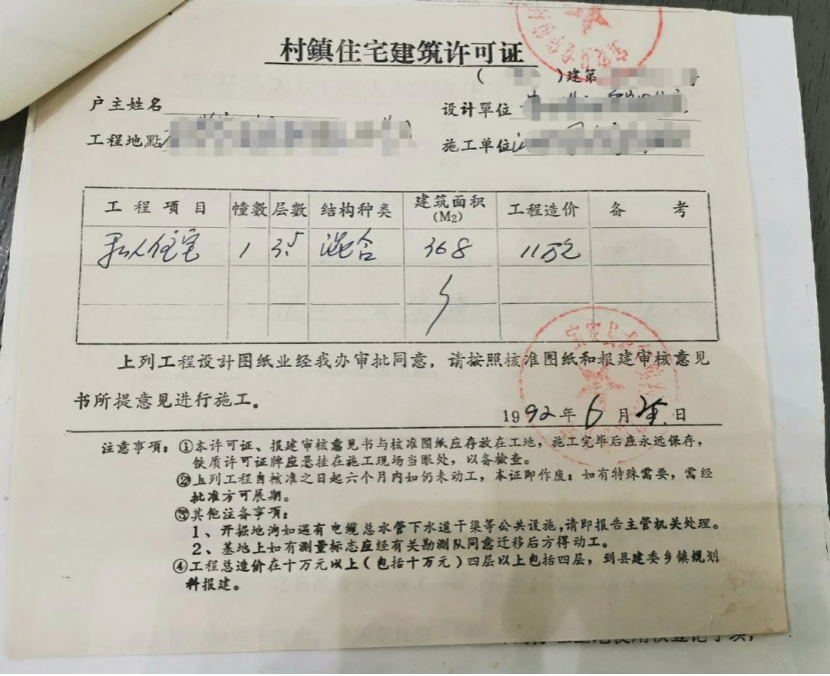 村鎮住宅建筑许可证
( )建第
户主姓名 设计單位
工程地點 施工单位
工程项目 幢數 层數 结构种类 建筑面积(M2) 工程造价 备考
私人住宅 1 3.5 混合 368 11万元
上列工程设計图纸业经我办审批同意，请按照核准图纸和报建审核意见
书所提意见进行施工。
1992年6月 日
注意事项：①本许可证、报建审核意见书与核准图纸应存放在工地，施工完毕后应永远保存，
铁质许可证牌应悬挂在施工现场当眼处，以备檢查。
②上列工程自核准之日起六个月内如仍未动工，本证即作废；如有特殊需要，需经
批准方可展期。
③其他注备事项：
1、开掘地沟如遇有电缆总水管下水道干渠等公共设施，请即报告主管机关处理。
2、基地上如有测量标志应经有关勘测队同意迁移后方得动工。
④工程总造价在十万元以上(包括十万元)四层以上包括四层，到县建委乡镇规划
科报建。